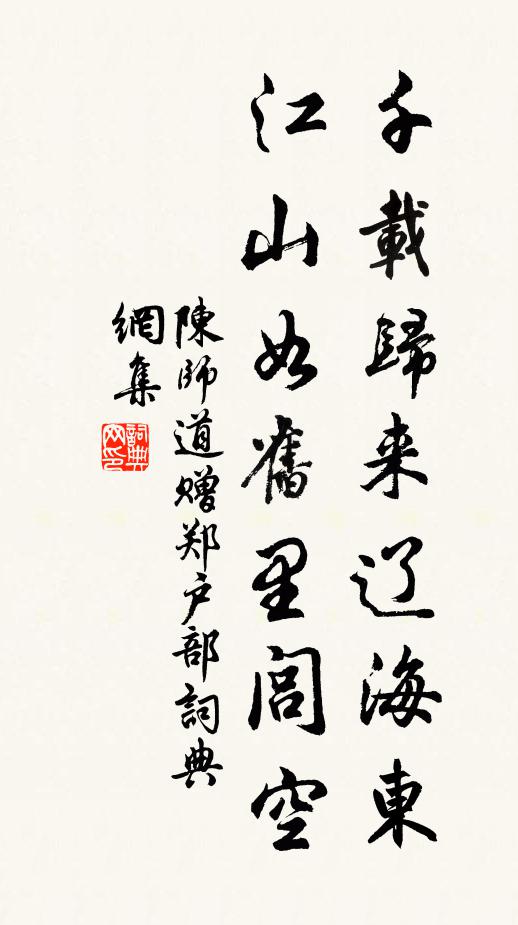 千載歸来辽海東
江山如舊里閭空
陳師道贈郑户部詞典
網集
詞典网印